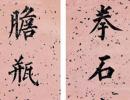 拳石
膽瓶